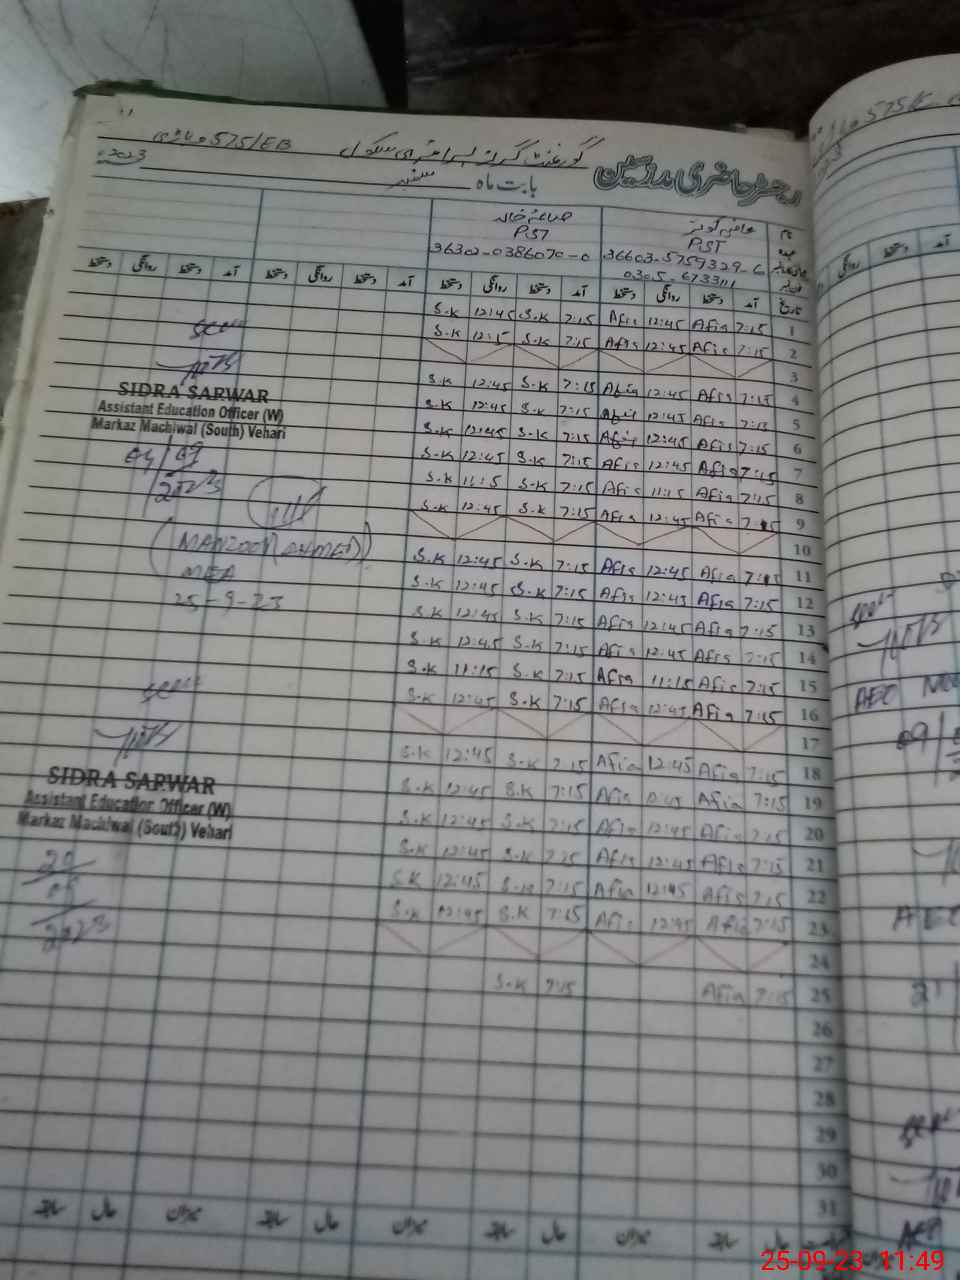 575/EB گورنمنٹ گرلز پرائمری سکول
رجسٹر حاضری مدرسین بابت ماہ ستمبر 2023
PST PST
36302-0386070-0 36603-5759329-6
0305-6733111
تاریخ آمد دستخط روانگی دستخط آمد دستخط روانگی دستخط آمد دستخط روانگی دستخط آمد دستخط روانگی دستخط
S.K 12:45 S.K 7:15 Afia 12:45 Afia 7:15 1
S.K 12:15 S.K 7:15 Afia 12:45 Afia 7:15 2
3
S.K 12:45 S.K 7:15 Afia 12:45 Afia 7:15 4
S.K 12:45 S.K 7:15 Afia 12:45 Afia 7:15 5
S.K 12:45 S.K 7:15 Afia 12:45 Afia 7:15 6
S.K 12:45 S.K 7:15 Afia 12:45 Afia 7:15 7
S.K 11:15 S.K 7:15 Afia 11:15 Afia 7:15 8
S.K 12:45 S.K 7:15 Afia 12:45 Afia 7:15 9
10
S.K 12:45 S.K 7:15 Afia 12:45 Afia 7:15 11
S.K 12:45 S.K 7:15 Afia 12:45 Afia 7:15 12
S.K 12:45 S.K 7:15 Afia 12:45 Afia 7:15 13
S.K 12:45 S.K 7:15 Afia 12:45 Afia 7:15 14
S.K 11:15 S.K 7:15 Afia 11:15 Afia 7:15 15
S.K 12:45 S.K 7:15 Afia 12:45 Afia 7:15 16
17
S.K 12:45 S.K 7:15 Afia 12:45 Afia 7:15 18
S.K 12:45 S.K 7:15 Afia 12:45 Afia 7:15 19
S.K 12:45 S.K 7:15 Afia 12:45 Afia 7:15 20
S.K 12:45 S.K 7:15 Afia 12:45 Afia 7:15 21
S.K 12:45 S.K 7:15 Afia 12:45 Afia 7:15 22
S.K 12:45 S.K 7:15 Afia 12:45 Afia 7:15 23
24
S.K 7:15 Afia 7:15 25
26
27
28
29
30
31
SIDRA SARWAR
Assistant Education Officer (W)
Markaz Machiwal (South) Vehari
04/09
2023
(MANZOOR AHMED)
MEA
25-9-23
SIDRA SARWAR
Assistant Education Officer (W)
Markaz Machiwal (South) Vehari
20
09
2023
575/E
AEO
25-09-23 11:49